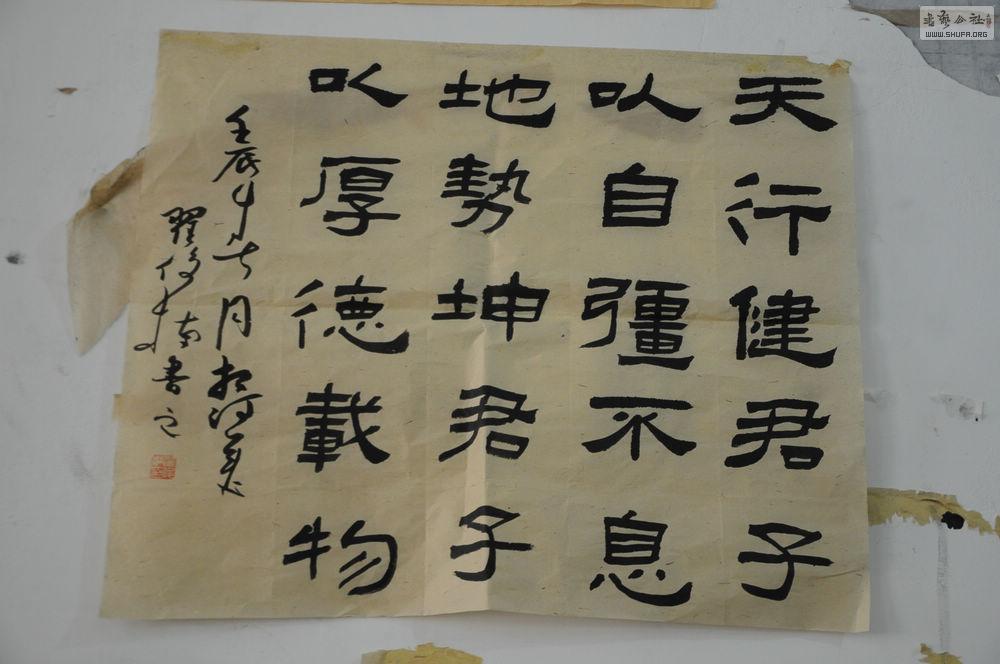 天行健君子
以自彊不息
地勢坤君子
以厚德載物
壬辰年七月於河
翟 書之
WWW.SHUFA.ORG